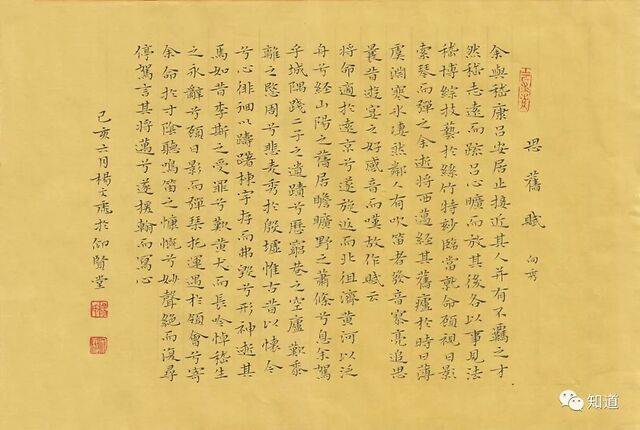 思舊賦 向秀
余與嵇康呂安居止接近其人并有不羈之才
然嵇志遠而踈呂心曠而放其後各以事見法
嵇博綜技藝於絲竹特妙臨當就命顧視日影
索琴而彈之余逝將西邁經其舊廬於時日薄
虞淵寒冰淒然鄰人有吹笛者發音寥亮追思
曩昔遊宴之好感音而嘆故作賦云
將命適於遠京兮遂旋返而北徂濟黃河以泛
舟兮經山陽之舊居瞻曠野之蕭條兮息余駕
乎城隅踐二子之遺蹟兮歷窮巷之空廬歎黍
離之愍周兮悲麦秀於殷墟惟古昔以懷今
兮心徘徊以躊躇棟宇存而弗毀兮形神逝其
焉如昔李斯之受罪兮歎黃犬而長吟悼嵇生
之永辭兮顧日影而彈琴托運遇於領會兮寄
余命於寸陰聽鳴笛之慷慨兮妙聲絕而復尋
停駕言其將邁兮遂援翰而寫心
己亥六月楊文虎於仰賢堂
知道